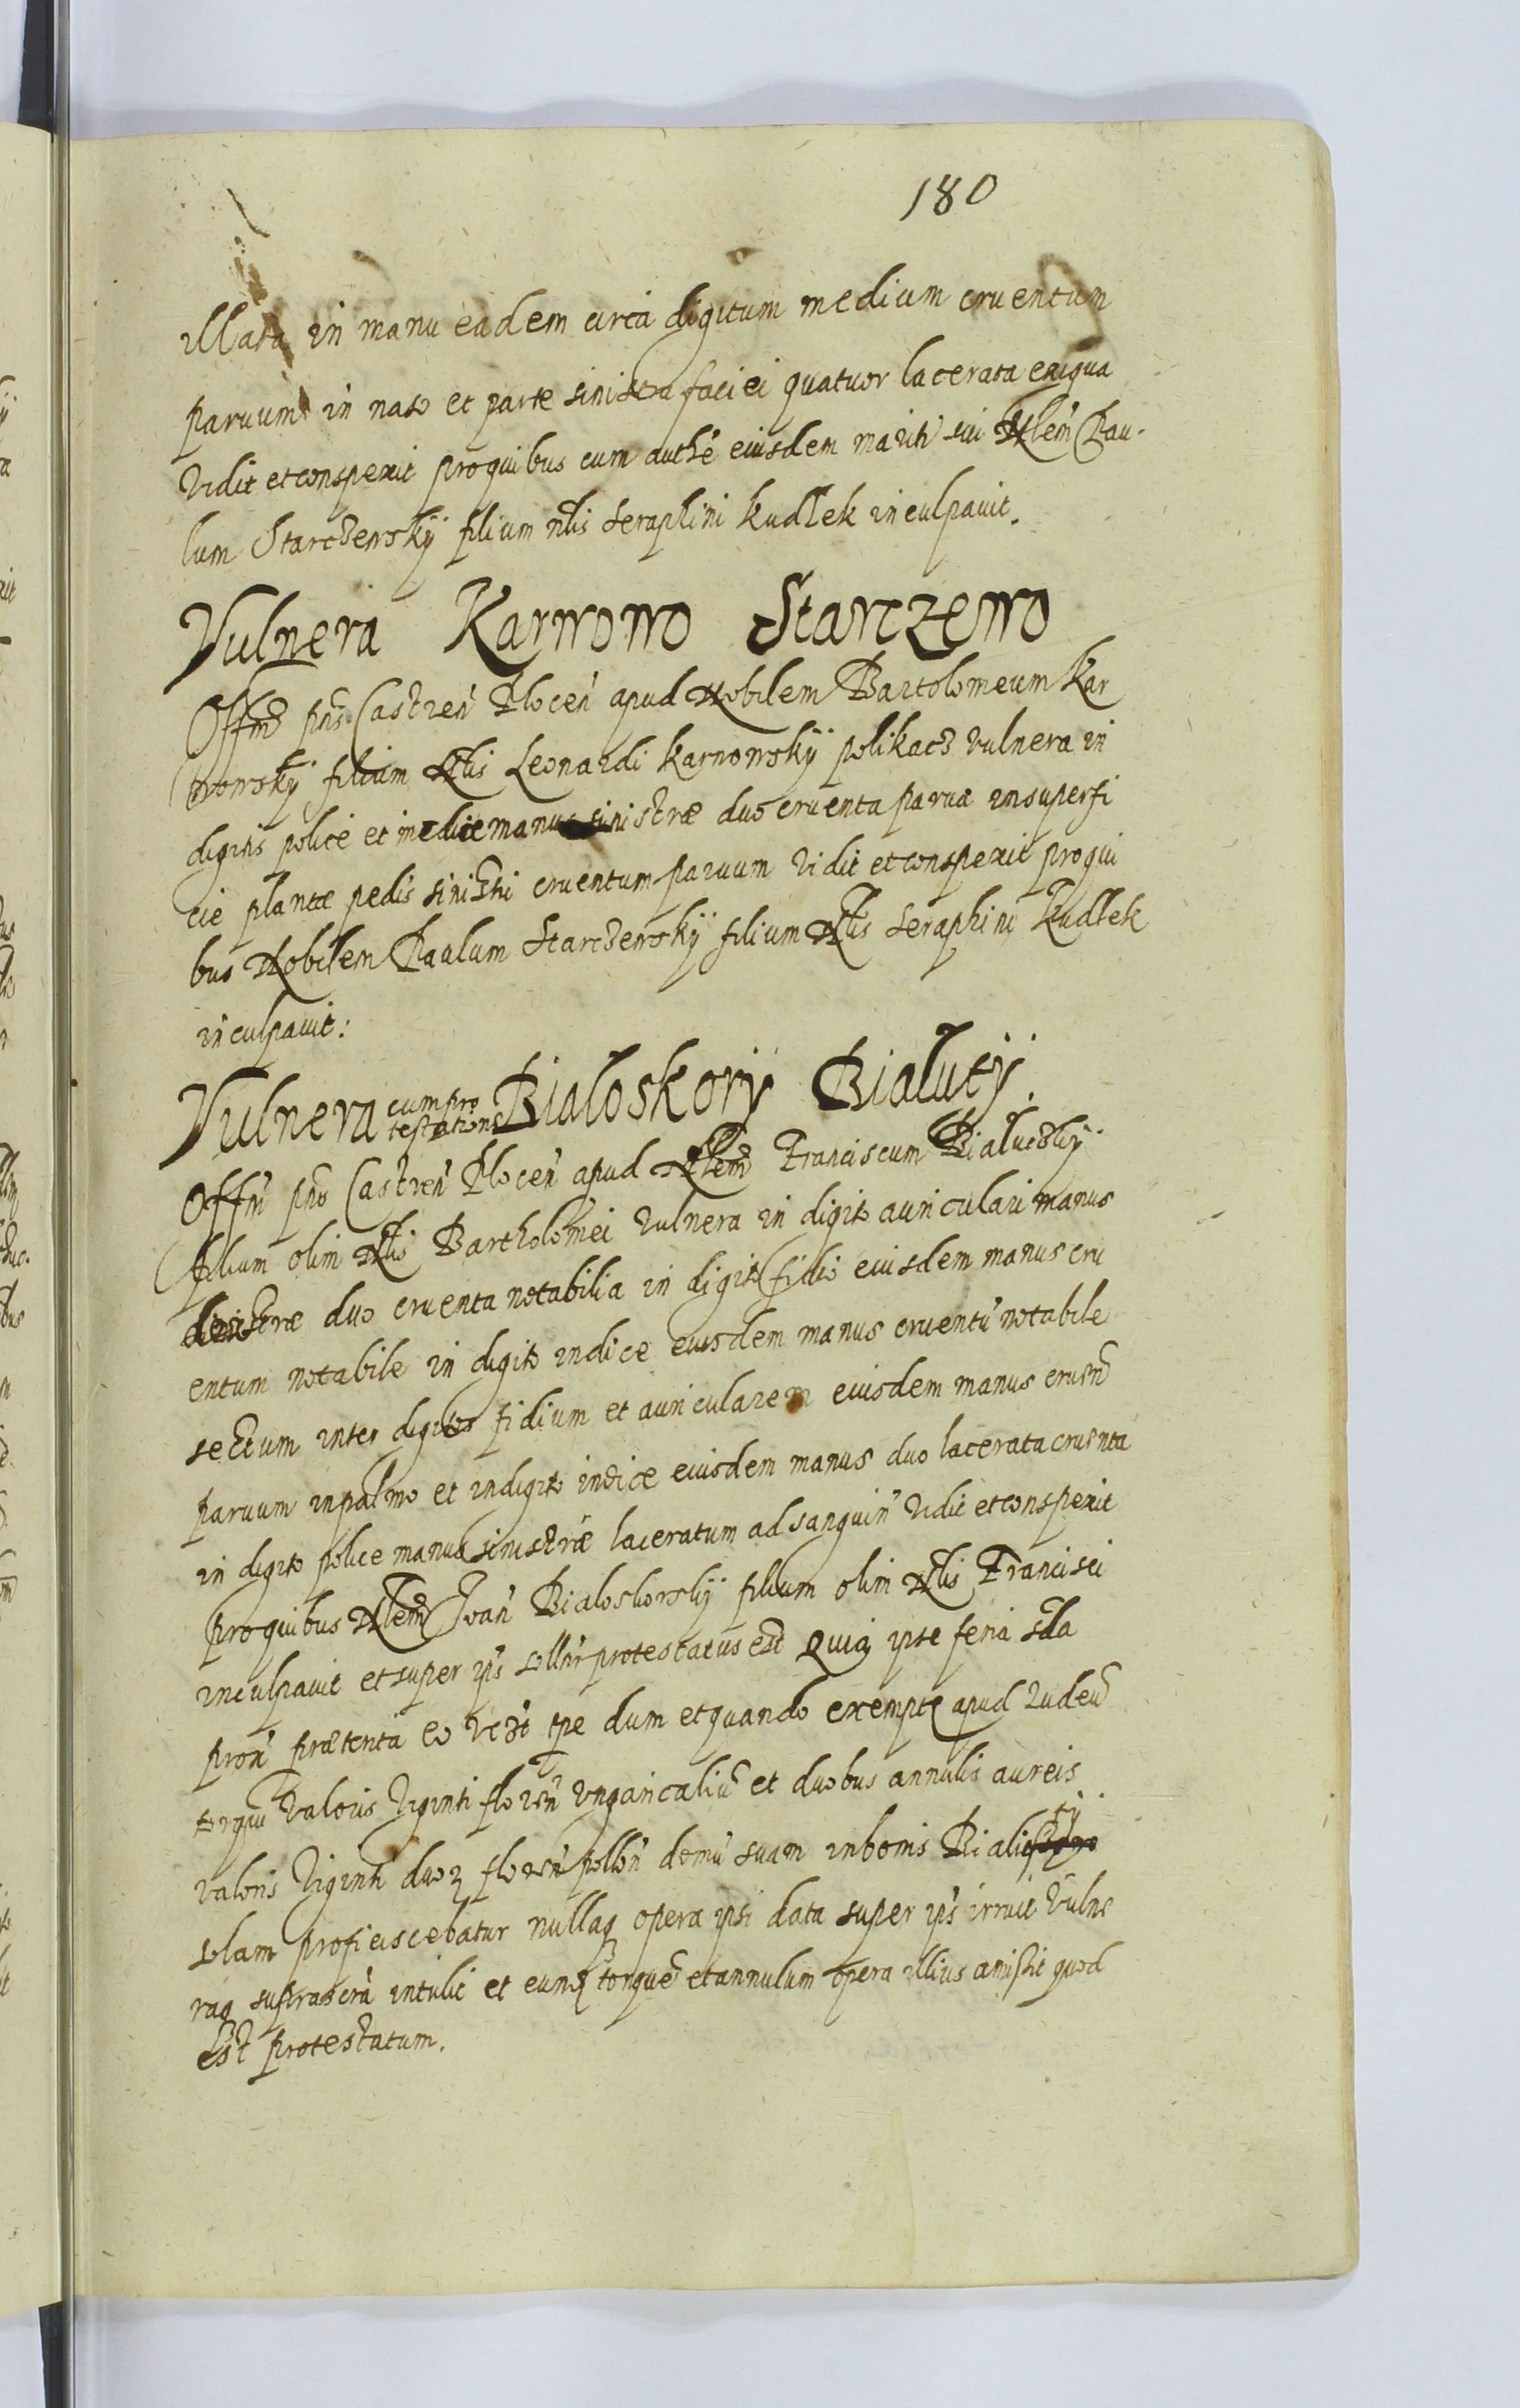 180
illata in manu eadem circa digitum medium cruentum
paruum in naso et parte sinistra faciei quatuor lacerata exigua
Vidit et conspexit pro quibus cum authe eiusdem mariti sui Nlem Pau-
lum Starczewskÿ filium nlis Seraphini Kudłek inculpauit.
Vulnera Karwowo Starczewo
Offm pns Castren Plocen apud Nobilem Bartolomeum Kar
wowskÿ filium Nlis Leonardi Karwowskÿ polikacz vulnera in
digitis police et medice manus sinistræ duo cruenta parua in superfi
cie plantæ pedis sinistri cruentum paruum Vidit et conspexit pro qui
bus Nobilem Paulum Starczewskÿ filium Nlis Seraphini Kudłek
inculpauit:
Vulnera cum pro
testatione Białoskorÿ Białutÿ.
Offm pns Castren Plocen apud Nlem Franciscum Białuczkÿ
filium olim Nlis Bartholomei Vulnera in digito auriculari manus
dextræ duo cruenta notabilia in digito fidio eiusdem manus cru
entum notabile in digito indice eiusdem manus cruentu notabile
sectum inter digitos fidium et auricularem eiusdem manus cruen
paruum in palmo et in digito indice eiusdem manus duo lacerata cruenta
in digito police manus sinistræ laceratum ad sanguin Vidit et conspexit
pro quibus Nlem Joan Białoskorskÿ filium olim Nlis Francisci
inculpauit et super ips sollnr protestatus est Quia ipse feria sda
prox prætenta eo vest tpe dum et quando exempte apud Iudeu
torqui valoris Viginti floren Vngaricaliu et duobus annulis aureis
valoris Viginti duoz floren pollon domu suam in bonis Białutÿ
solam proficiscebatur nullaq opera ipsi data super ips irruit Vulne
raq suprascra intulit et eundem torque et annulum opera illius amisit quod
est protestatum.